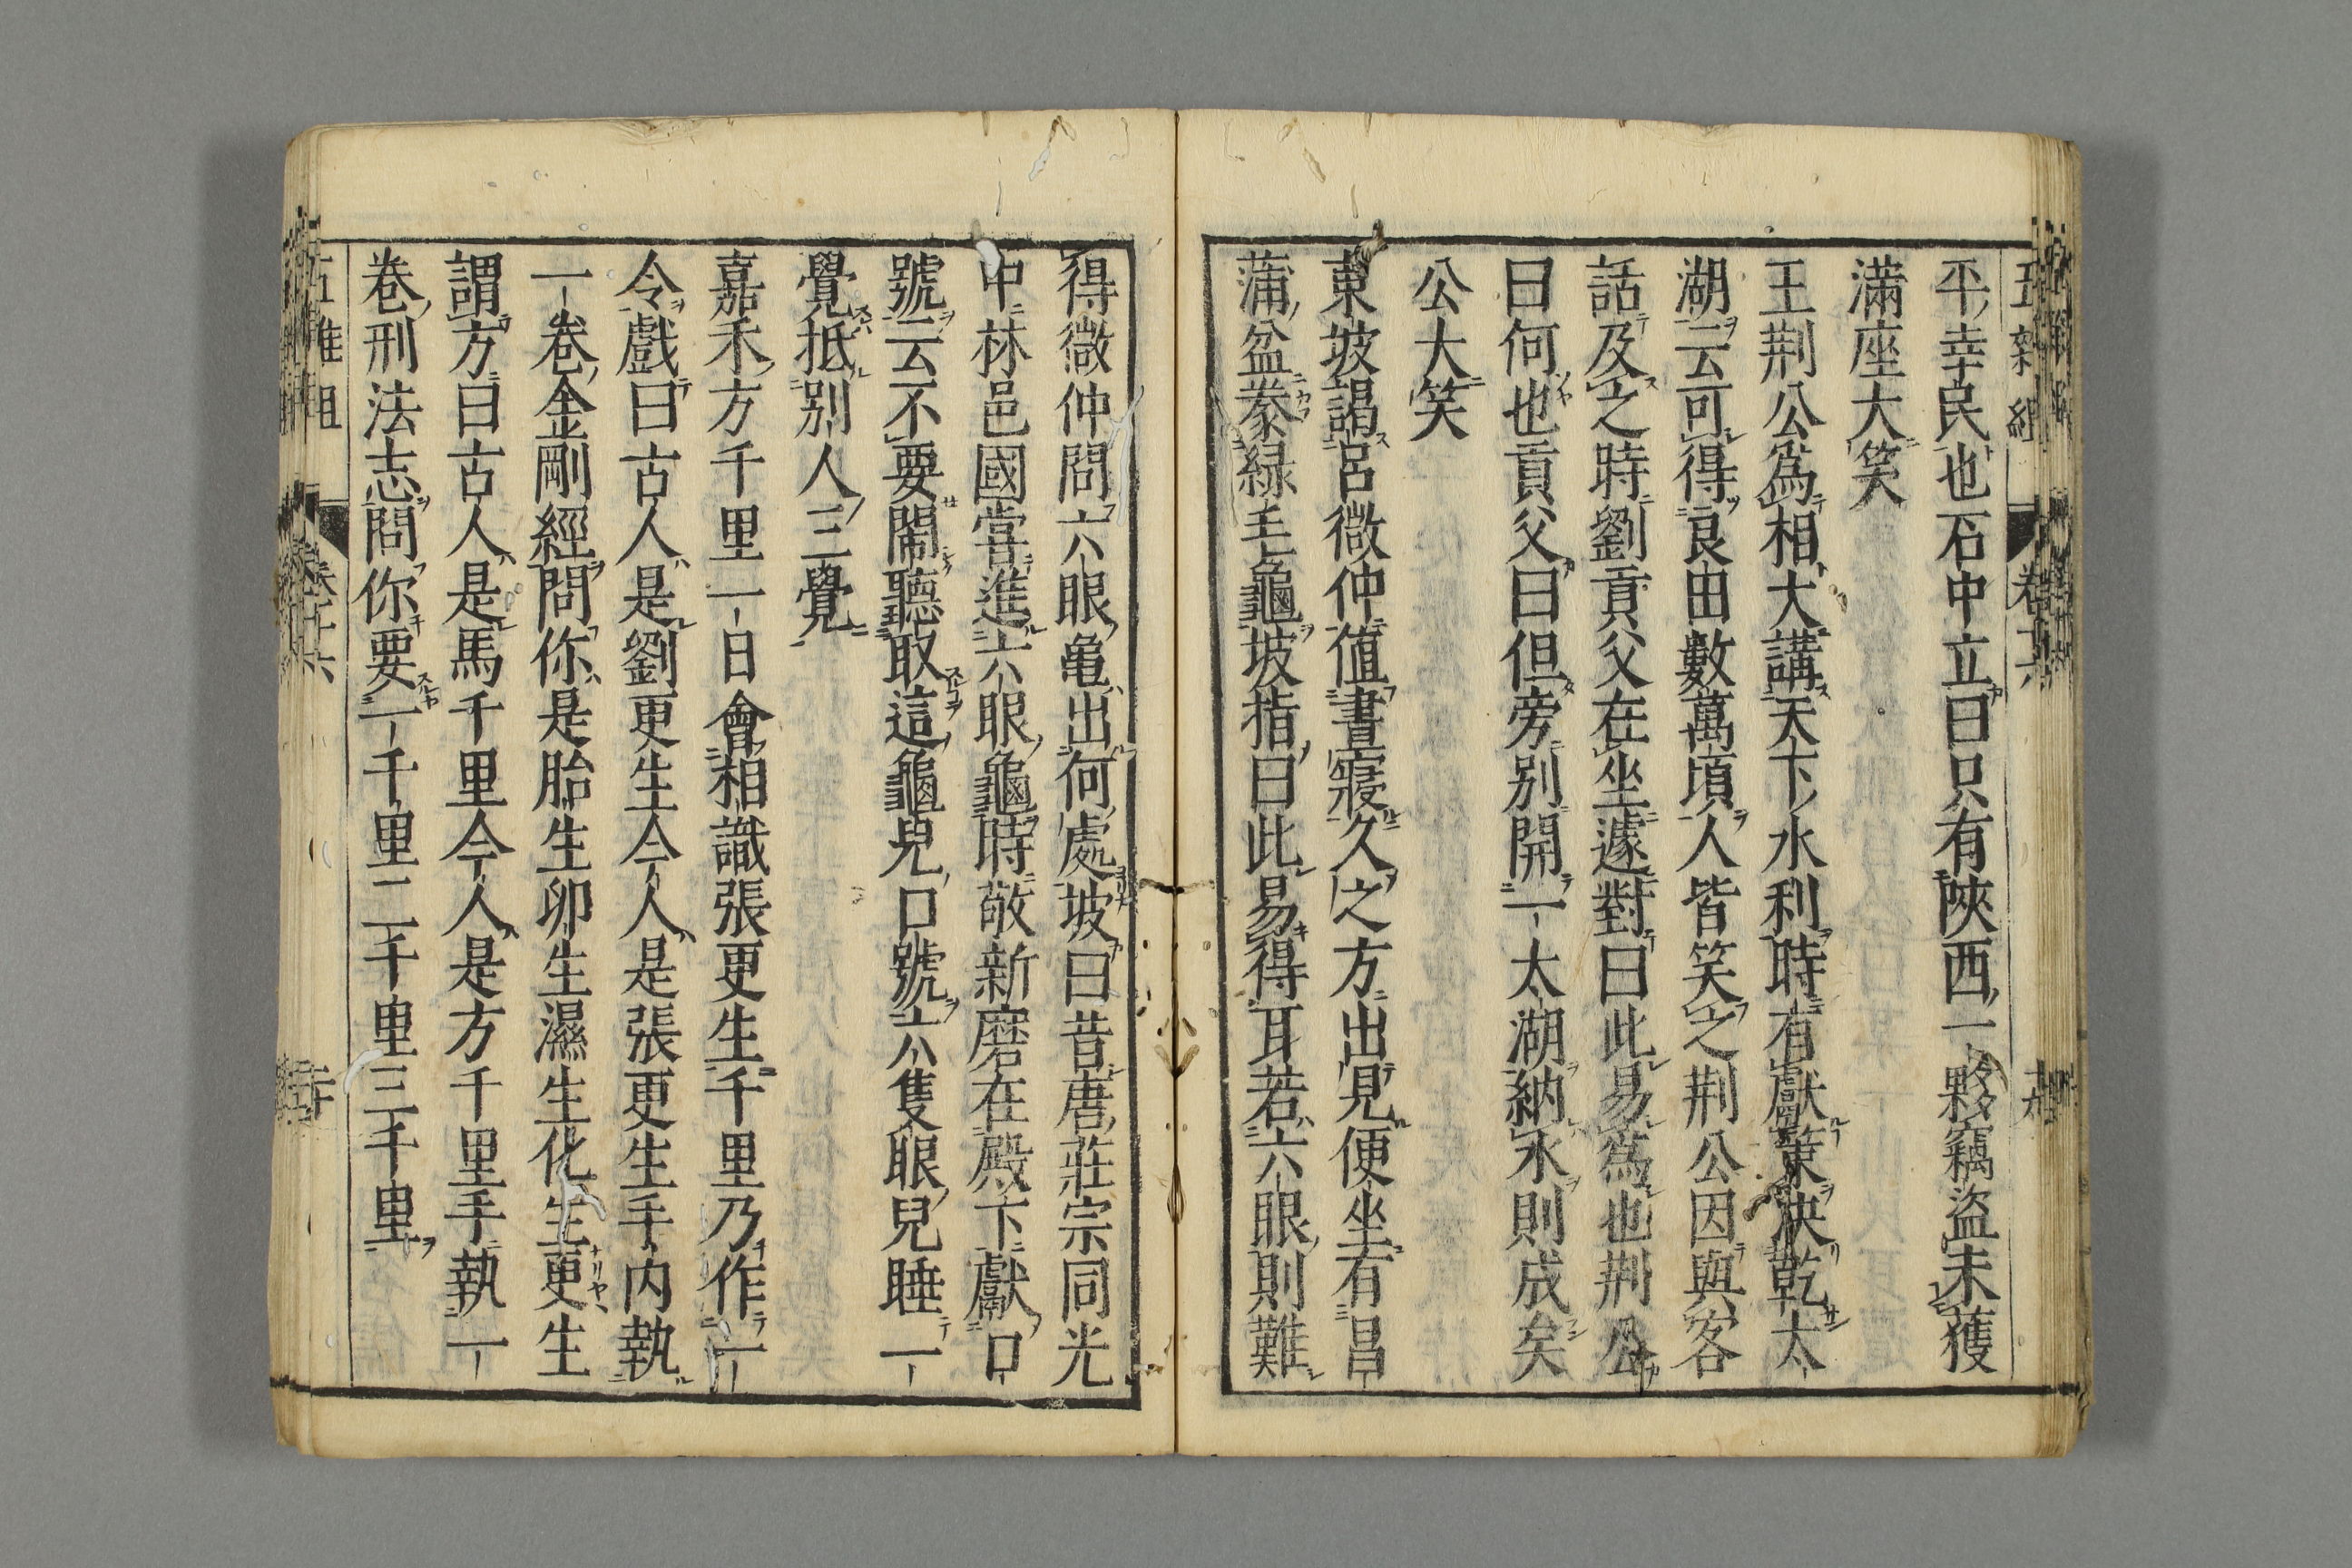 五雜組 卷十六 十九
平幸民也石中立曰只有陝西一夥竊盜未獲
滿座大笑
王荆公爲相大講天下水利時有獻策決乾太
湖云可得良田數萬頃人皆笑之荆公因與客
話及之時劉貢父在坐遽對曰此易爲也荆公
曰何也貢父曰但旁别開一太湖納水則成矣
公大笑
東坡謁呂微仲值晝寢久之方出見便坐有昌
蒲盆豢緑毛龜坡指曰此易得耳若六眼則難
得微仲問六眼亀出何處坡曰昔唐莊宗同光
中林邑國甞進六眼龜時敬新磨在殿下獻口
號云不要鬧聽取這龜兒口號六隻眼兒睡一
覺抵别人三覺
嘉禾方千里一日會相識張更生千里乃作一
令戲曰古人是劉更生今人是張更生手内執
一卷金剛經問你是胎生卵生濕生化生更生
謂方曰古人是馬千里今人是方千里手執一
卷刑法志問你要一千里二千里三千里
卷十六 二十